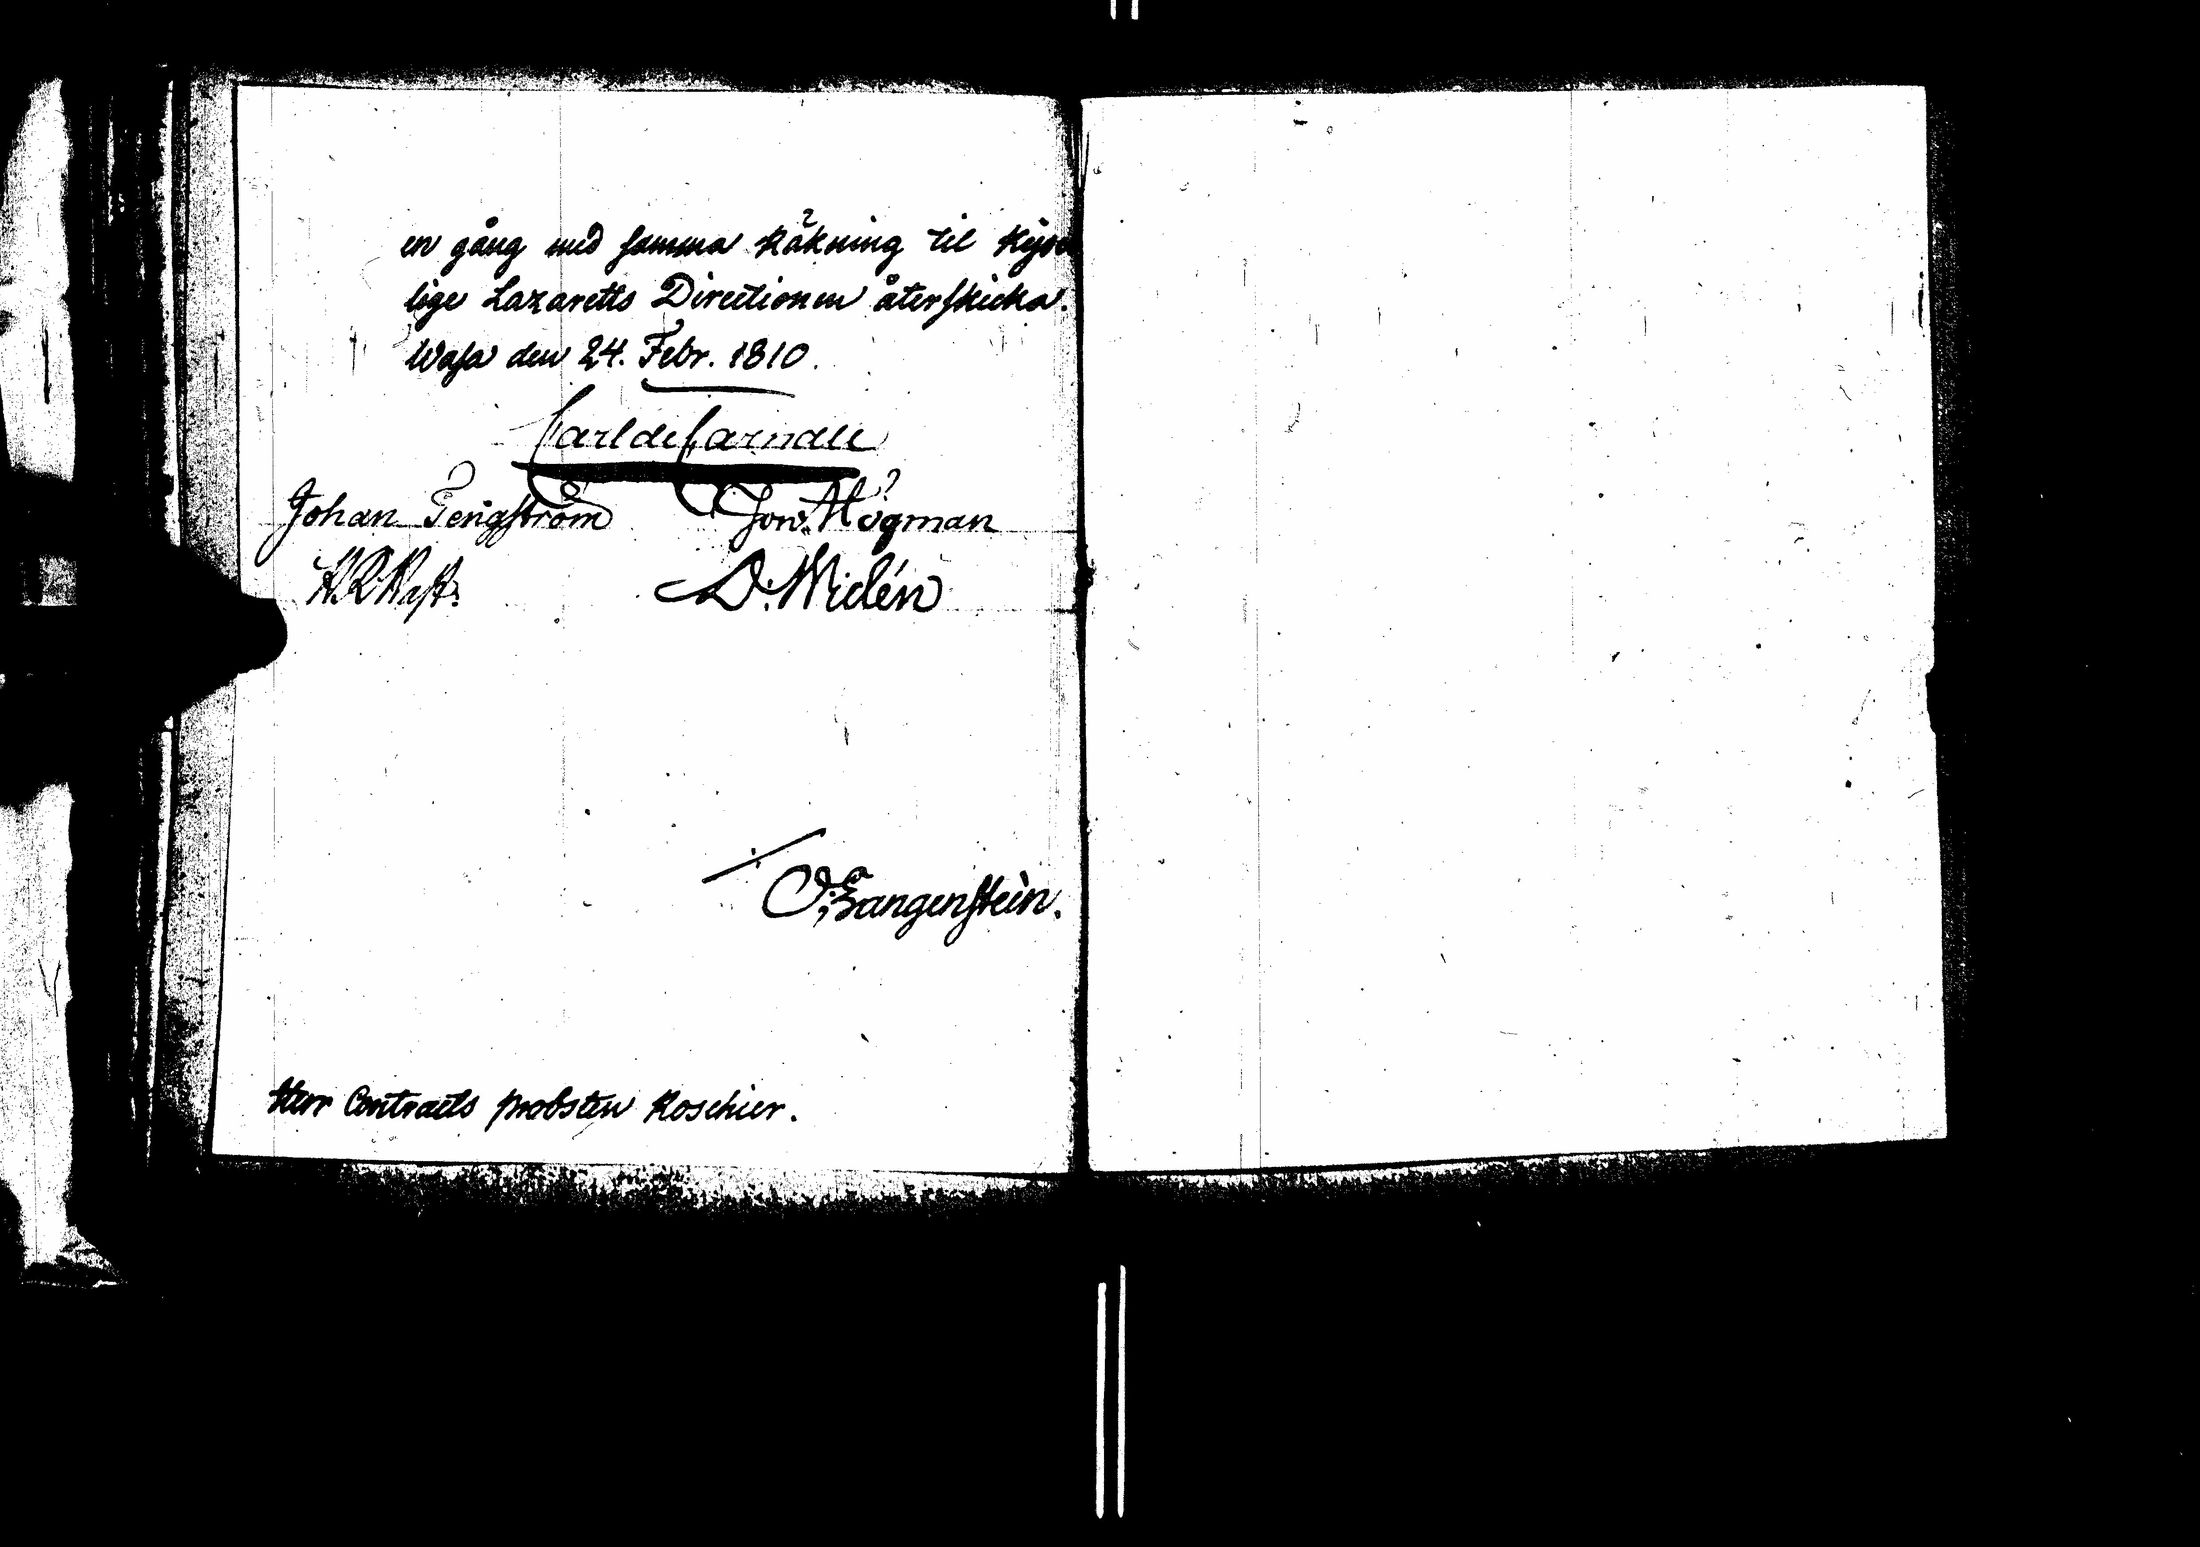 en gång med samma Räkning til Kejser
lige Lazaretts Directionen återskicka.
Wasa den 24. Febr. 1810.
Carl de Carnall
Johan Tengström Jon. Högman
D. Widén
O. Langenstein.
Herr Contracts probsten Roschier.